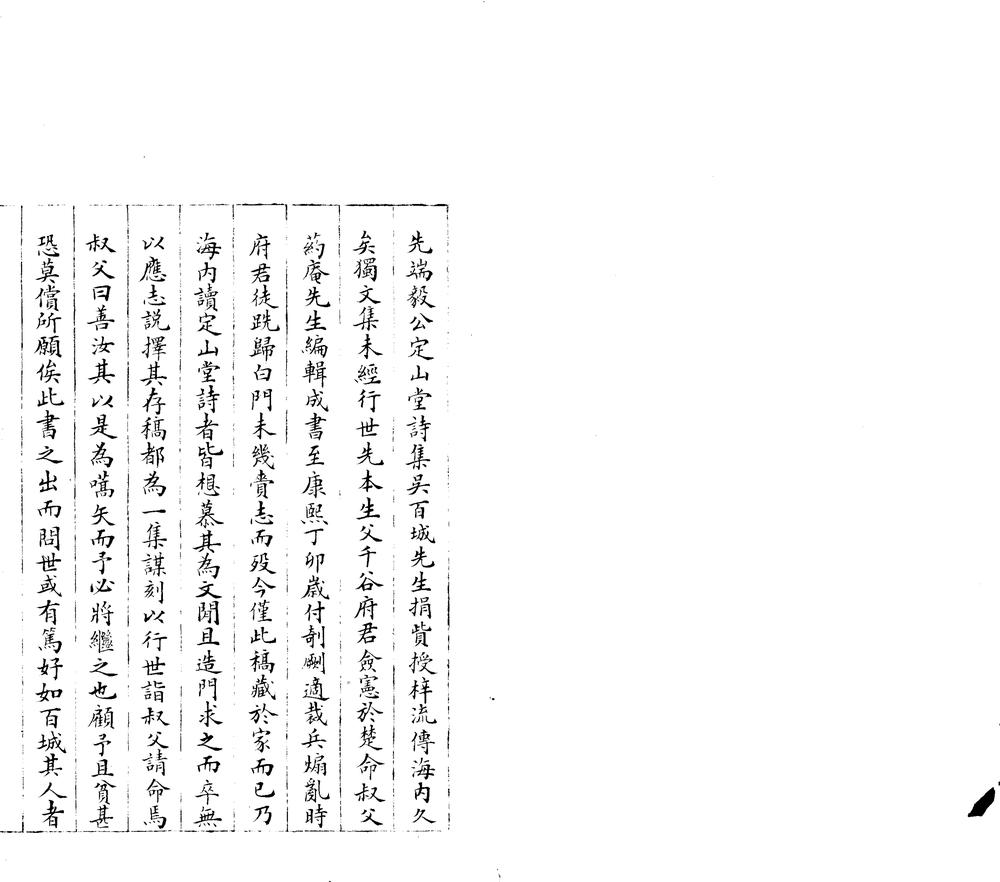 先端毅公定山堂詩集吳百城先生捐貲授梓流傳海內久
矣獨文集未經行世先本生父千谷府君僉憲於楚命叔父
葯庵先生編輯成書至康熙丁卯歲付剞劂適裁兵煽亂時
府君徒跣歸白門未幾賷志而歿今僅此稿藏於家而已乃
海內讀定山堂詩者皆想慕其為文聞且造門求之而卒無
以應志説擇其存稿都為一集謀刻以行世詣叔父請命焉
叔父曰善汝其以是為嚆矢而予必將繼之也顧予且貧甚
恐莫償所願俟此書之出而問世或有篤好如百城其人者